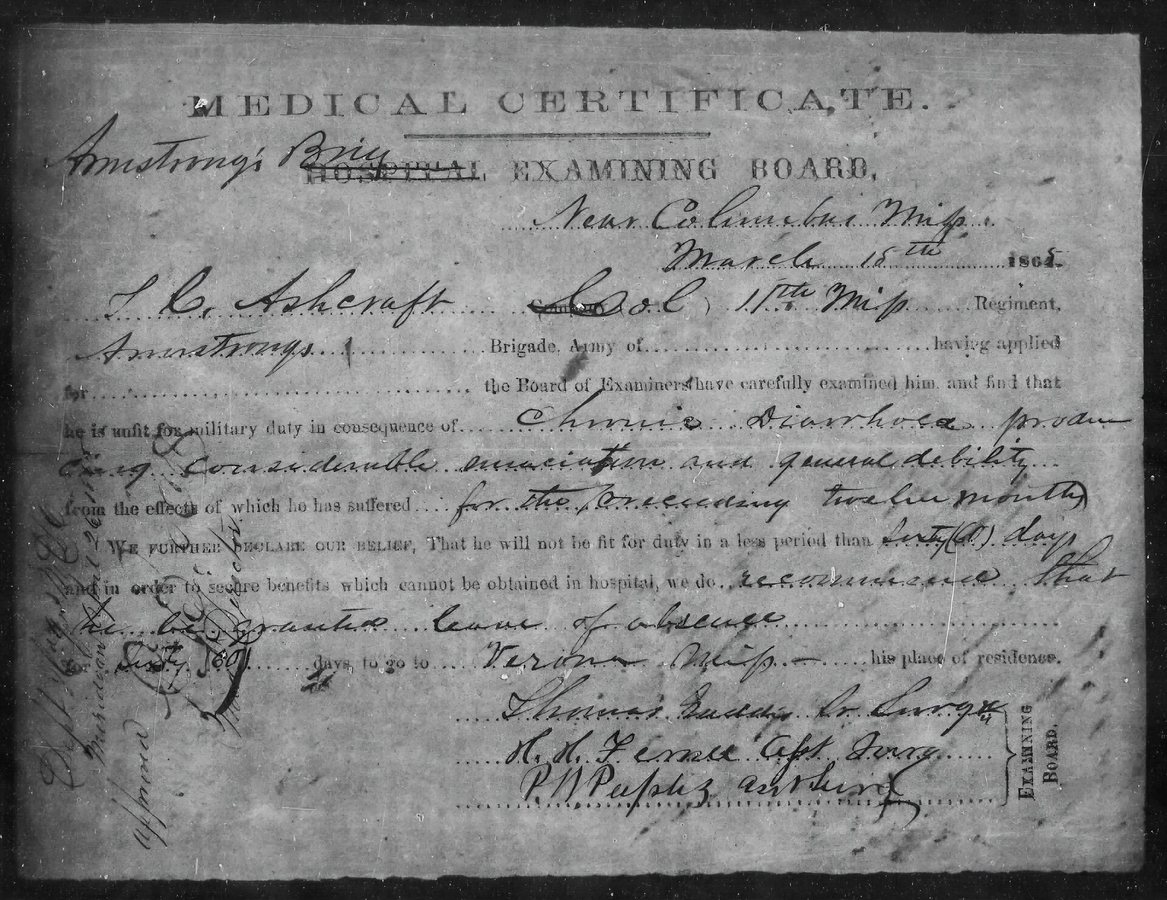 MEDICAL CERTIFICATE.
Armstrong's Brig
HOSPITAL EXAMINING BOARD,
Near Columbus Miss.
March 18th 1865.
T C. Ashcraft Col, 11th Miss Regiment,
Armstrongs Brigade, Army of having applied
for the Board of Examiners have carefully examined him, and find that
he is unfit for military duty in consequence of Chronic Diarrhoea produ
cing considerable emaciation and general debility
from the effects of which he has suffered for the preceeding twelve months
WE FURTHER DECLARE OUR BELIEF, That he will not be fit for duty in a less period than Sixty (60) days
and in order to secure benefits which cannot be obtained in hospital, we do recommend that
he be granted leave of absence
for Sixty (60) days, to go to Verona Miss — his place of residence.
Thomas Gaddis Sr Surgn
H. H. Asst Surg
P W Peeples asst Surg
EXAMINING
BOARD.
approved